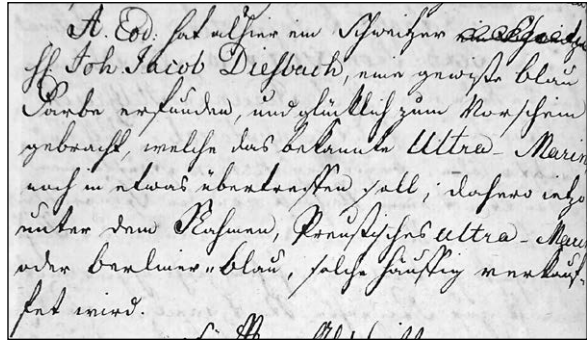 A. Eod. hat alhier ein Schweitzer
H. Joh. Jacob Diesbach, eine gewisse blau
Farbe erfunden, und glücklich zum Vorschein
gebracht, welche das bekannte Ultra-Marin
noch in etwas übertreffen soll; dahero ietzo
unter dem Nahmen, Preussisches Ultra-Mari
oder Berliner-blau, solche häuffig verkauf-
fet wird.